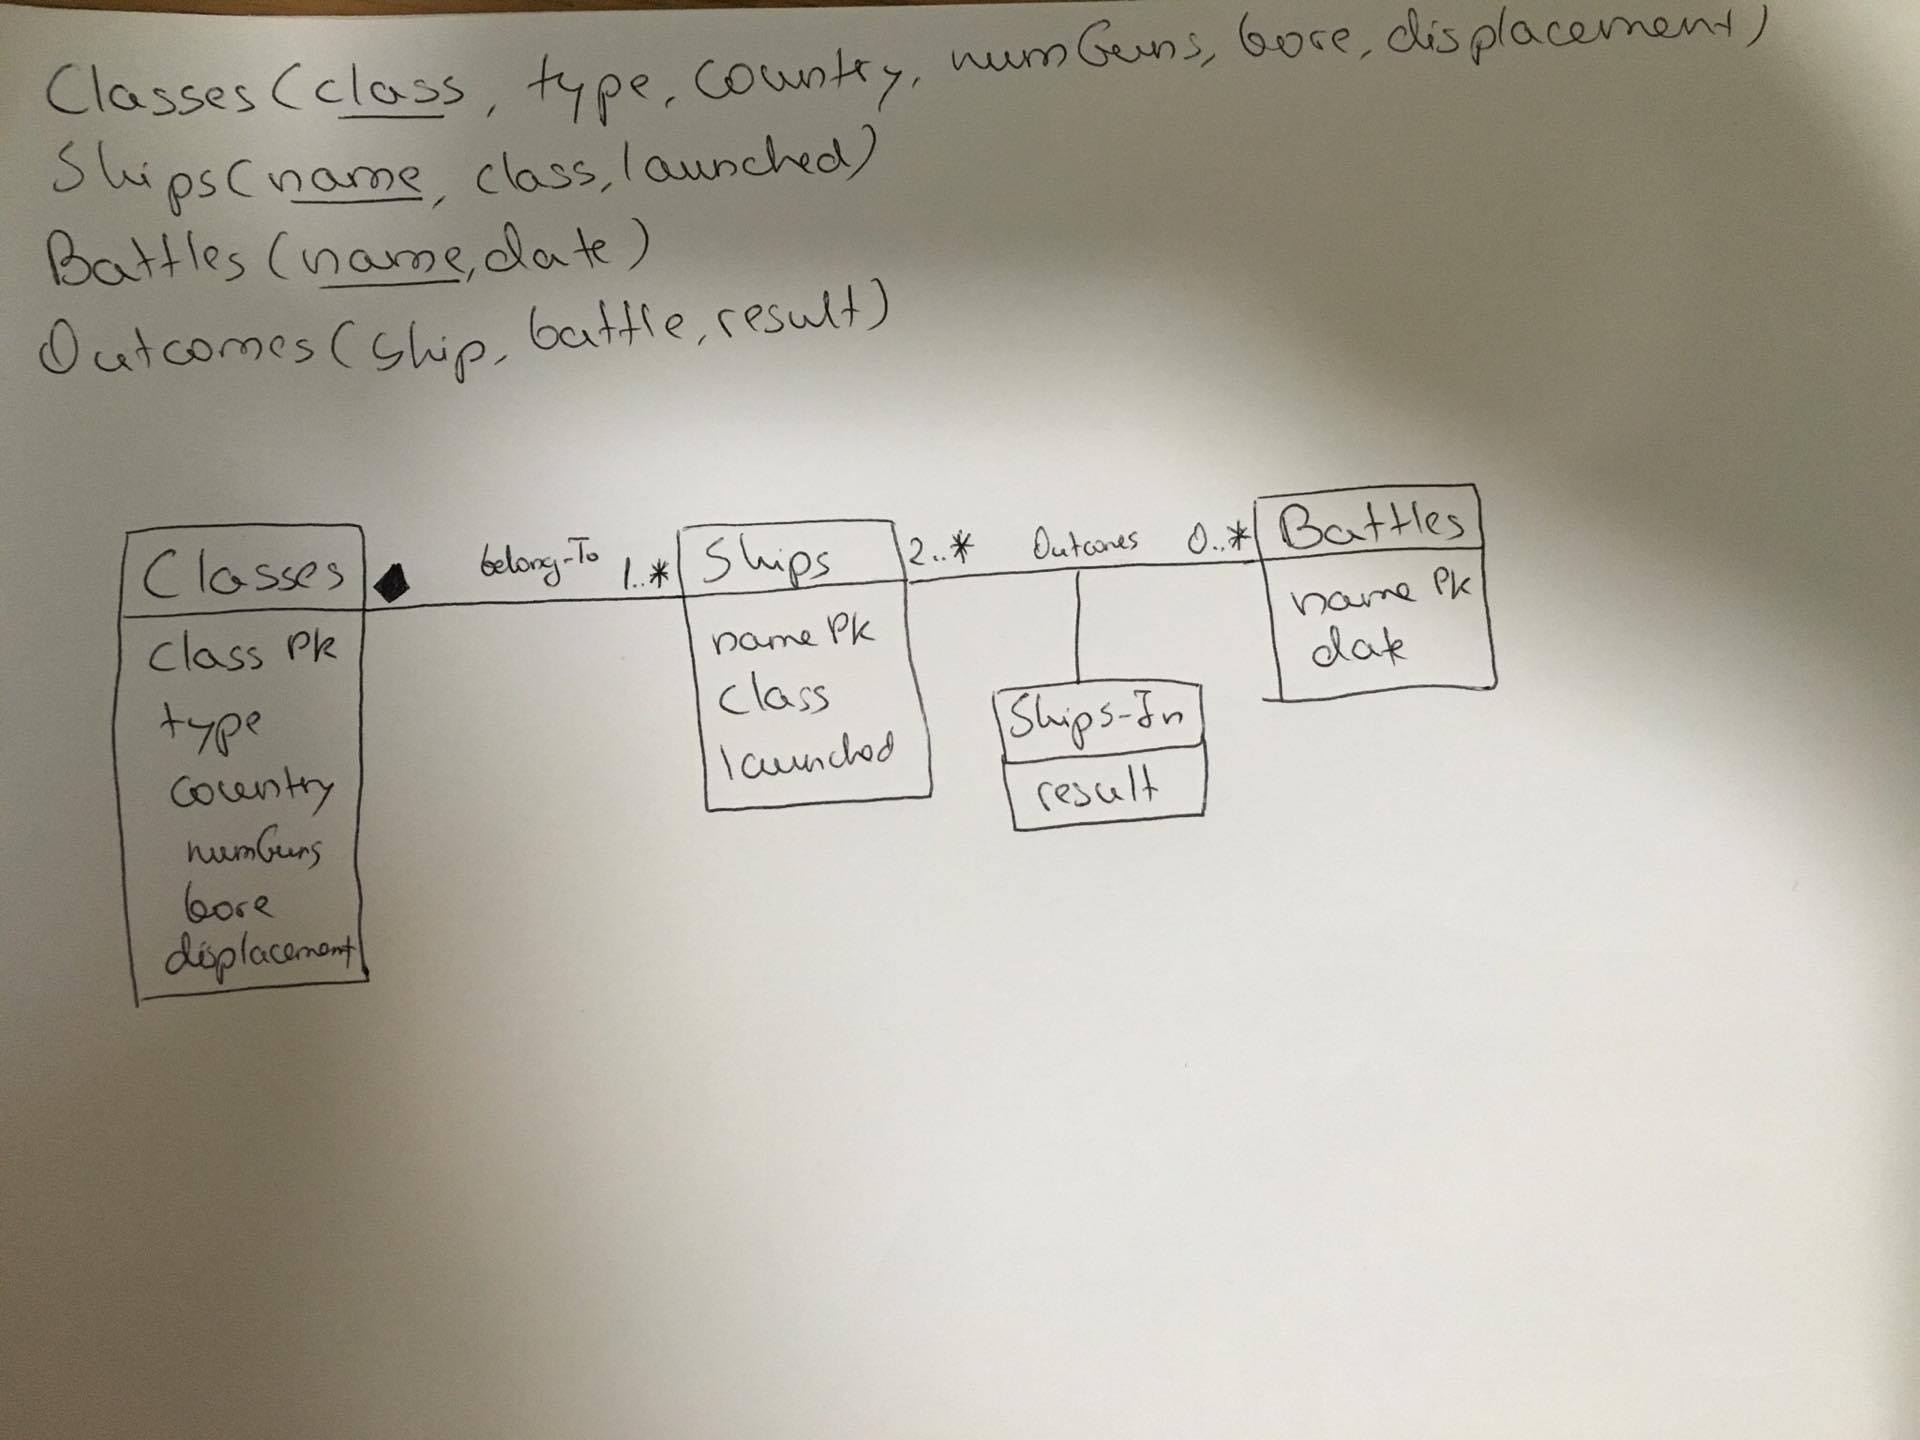 Classes (class, type, country, numGuns, bore, displacement)
Ships (name, class, launched)
Battles (name, date)
Outcomes (ship, battle, result)
Classes
class PK
type
country
numGuns
bore
displacement
belong-To
1..*
Ships
name PK
class
launched
2..*
Outcomes
0..*
Ships-In
result
Battles
name PK
date